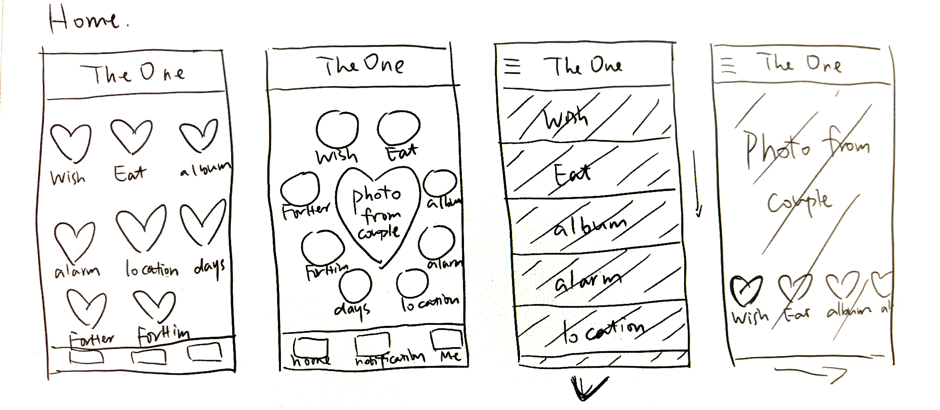 Home.
The One
Wish Eat album
alarm location days
ForHer ForHim
The One
Wish Eat
ForHer photo from couple album
ForHim alarm
days location
home notification Me
The One
Wish
Eat
album
alarm
location
The One
Photo from
couple
Wish Eat album al